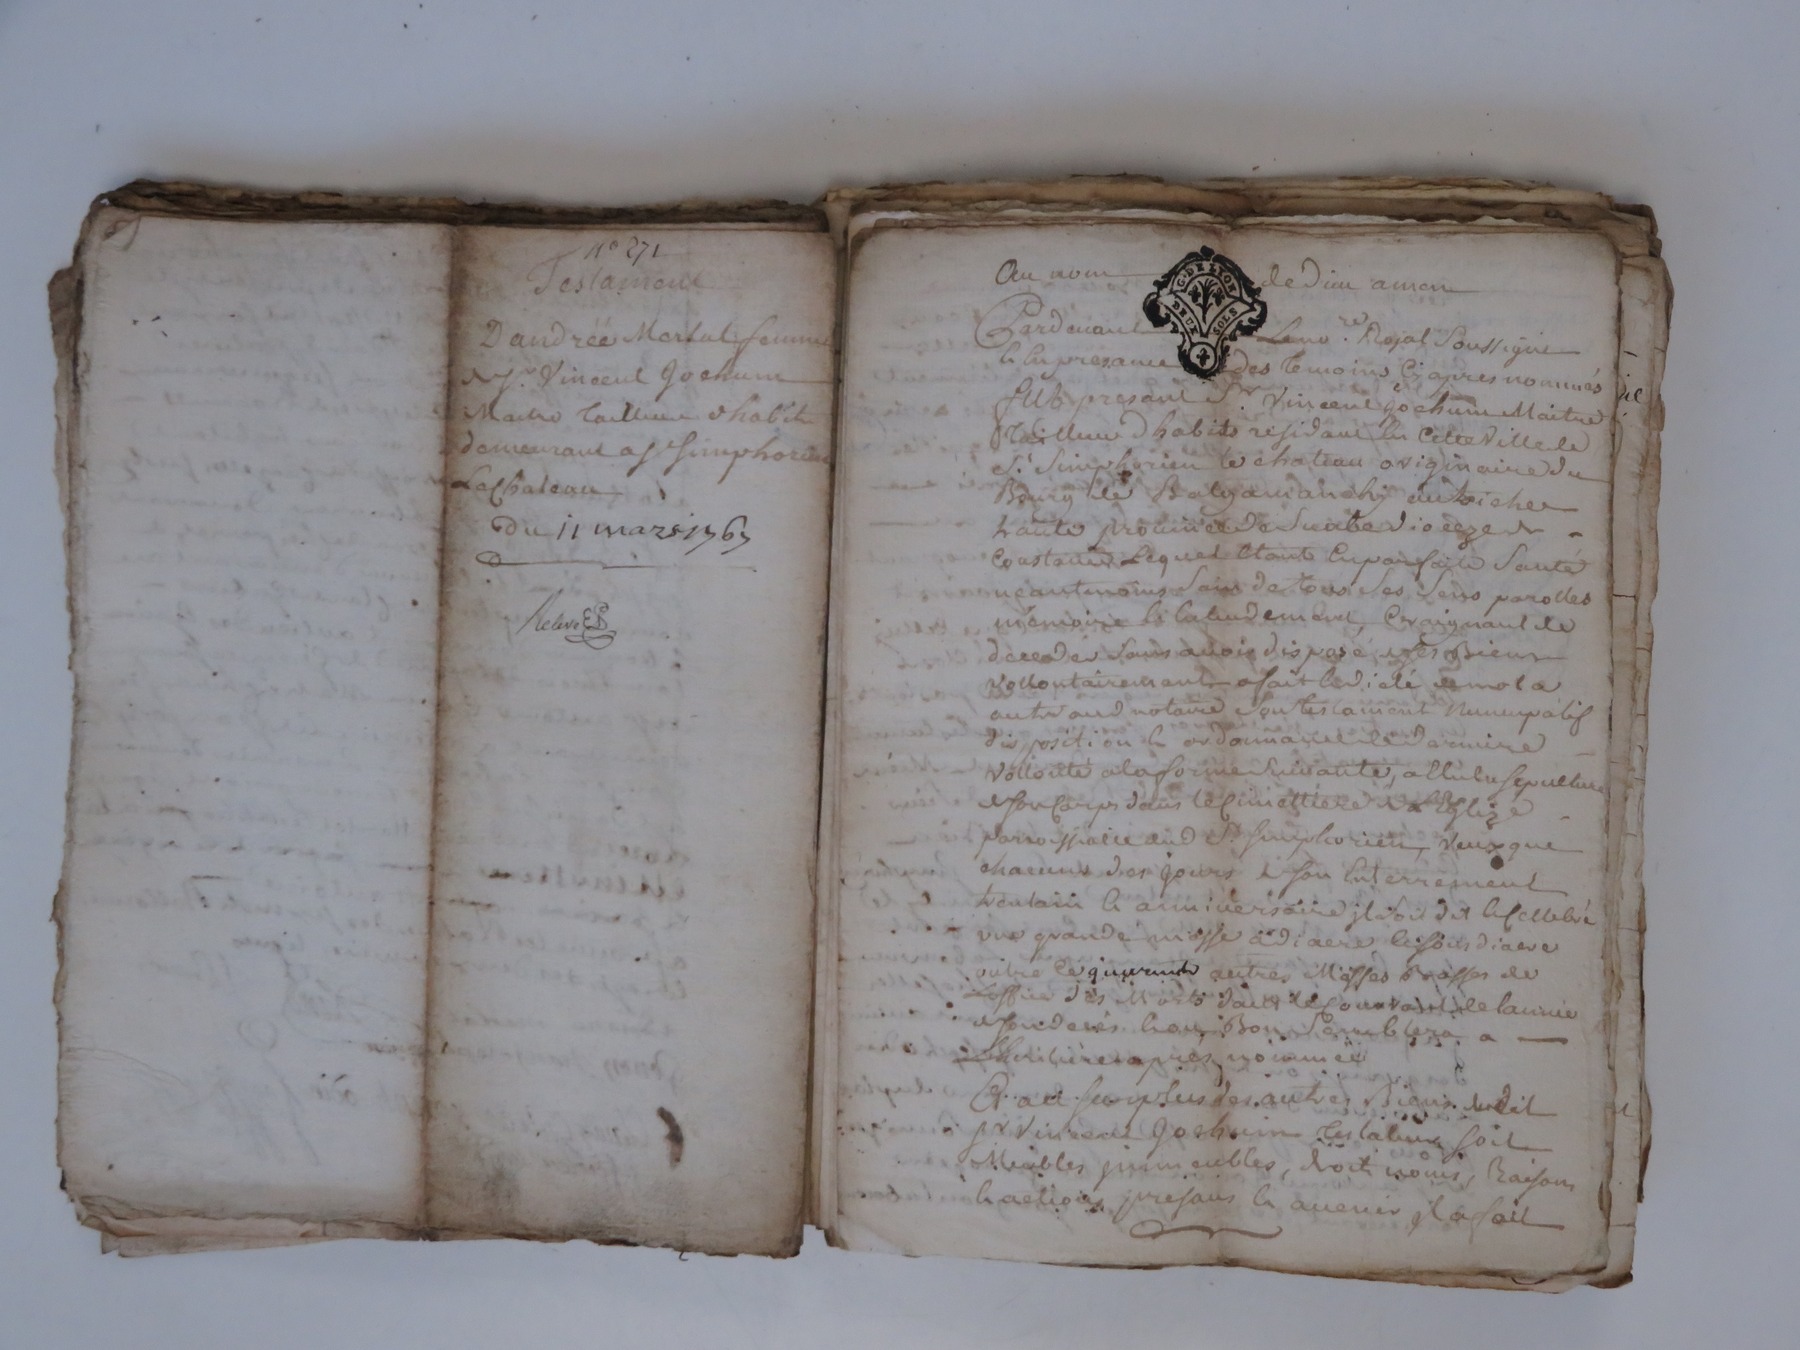 n° 271
Testament
D'andrée Mertul femme
de Sr. Vincent Jochum
Maitre Tailleur d'habits
demeurant a St Simphorien
Le Chateau
Du 11 mars 1767
Relevé
Au nom de Dieu amen
G. DE LYON
DEUX SOLS
Pardevant Le no.re Royal Soussigné
& en presance des temoins Ci apres nommés
fut present Sr. Vincent Jochum Maitre
Tailleur d'habits residant en Cette Ville de
St. Simphorien le chateau originaire du
Bourg de
haute province de Suabe dioceze de
Constance Lequel Etant En parfaite Santé
neantmoins Sain de tous Ses Sens parolles
mémoire & Entendement, Craignant de
deceder Sans avoir disposé de Ses Biens
vollontairement a fait & dicté de mot a
autre aud notaire Son testament Nuncupatif
disposition & ordonnance de derniere
vollonté a la forme Suivante, a Elu la Sepulture
de Son Corps dans le Cimettiere de L'Eglize
parroissialle dud St. Simphorien, Veut que
chacuns des jours de Son Enterrement
trentain & anniversaire il Soit dit & Cellebré
une grande messe a diacre & Sous diacre
outre Ce quarante autres Messes Basses de
L'office des Morts dans le Courrant de l'année
de Son decés & ou Bon Semblera a
L'heritiere apres nommée
Et au Surplus des autres Biens dudit
Sr Vincent Jochum testateur Soit
Meubles immeubles, droit noms, Raisons
& actions presans & avenir il a fait